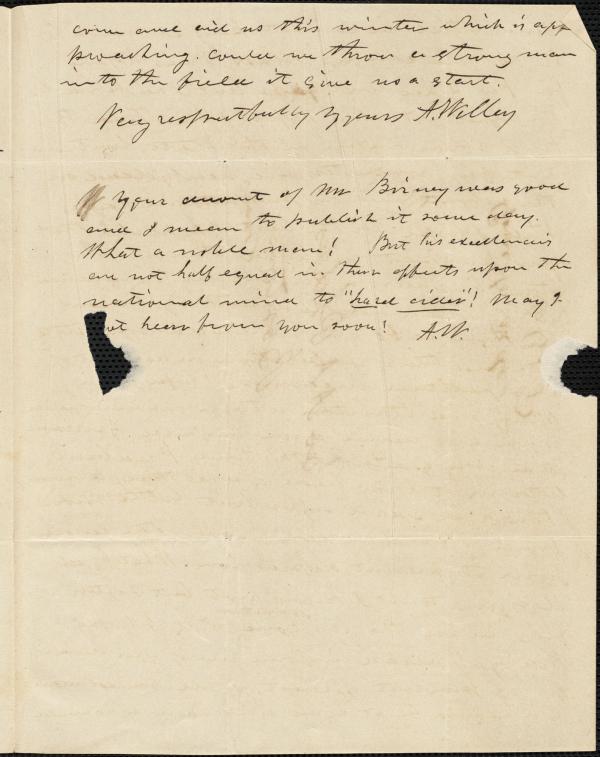 come and aid us this winter which is app
proaching. Could we throw a strong man
into the field it give us a start.
Very respectfully yours A. Willey
Your acount of Mr Birney was good
and I mean to publish it some day.
What a noble man! But his excellencies
are not half equal in their effects upon the
national mind to "hard cider"! May I
ot hear from you soon! A.W.